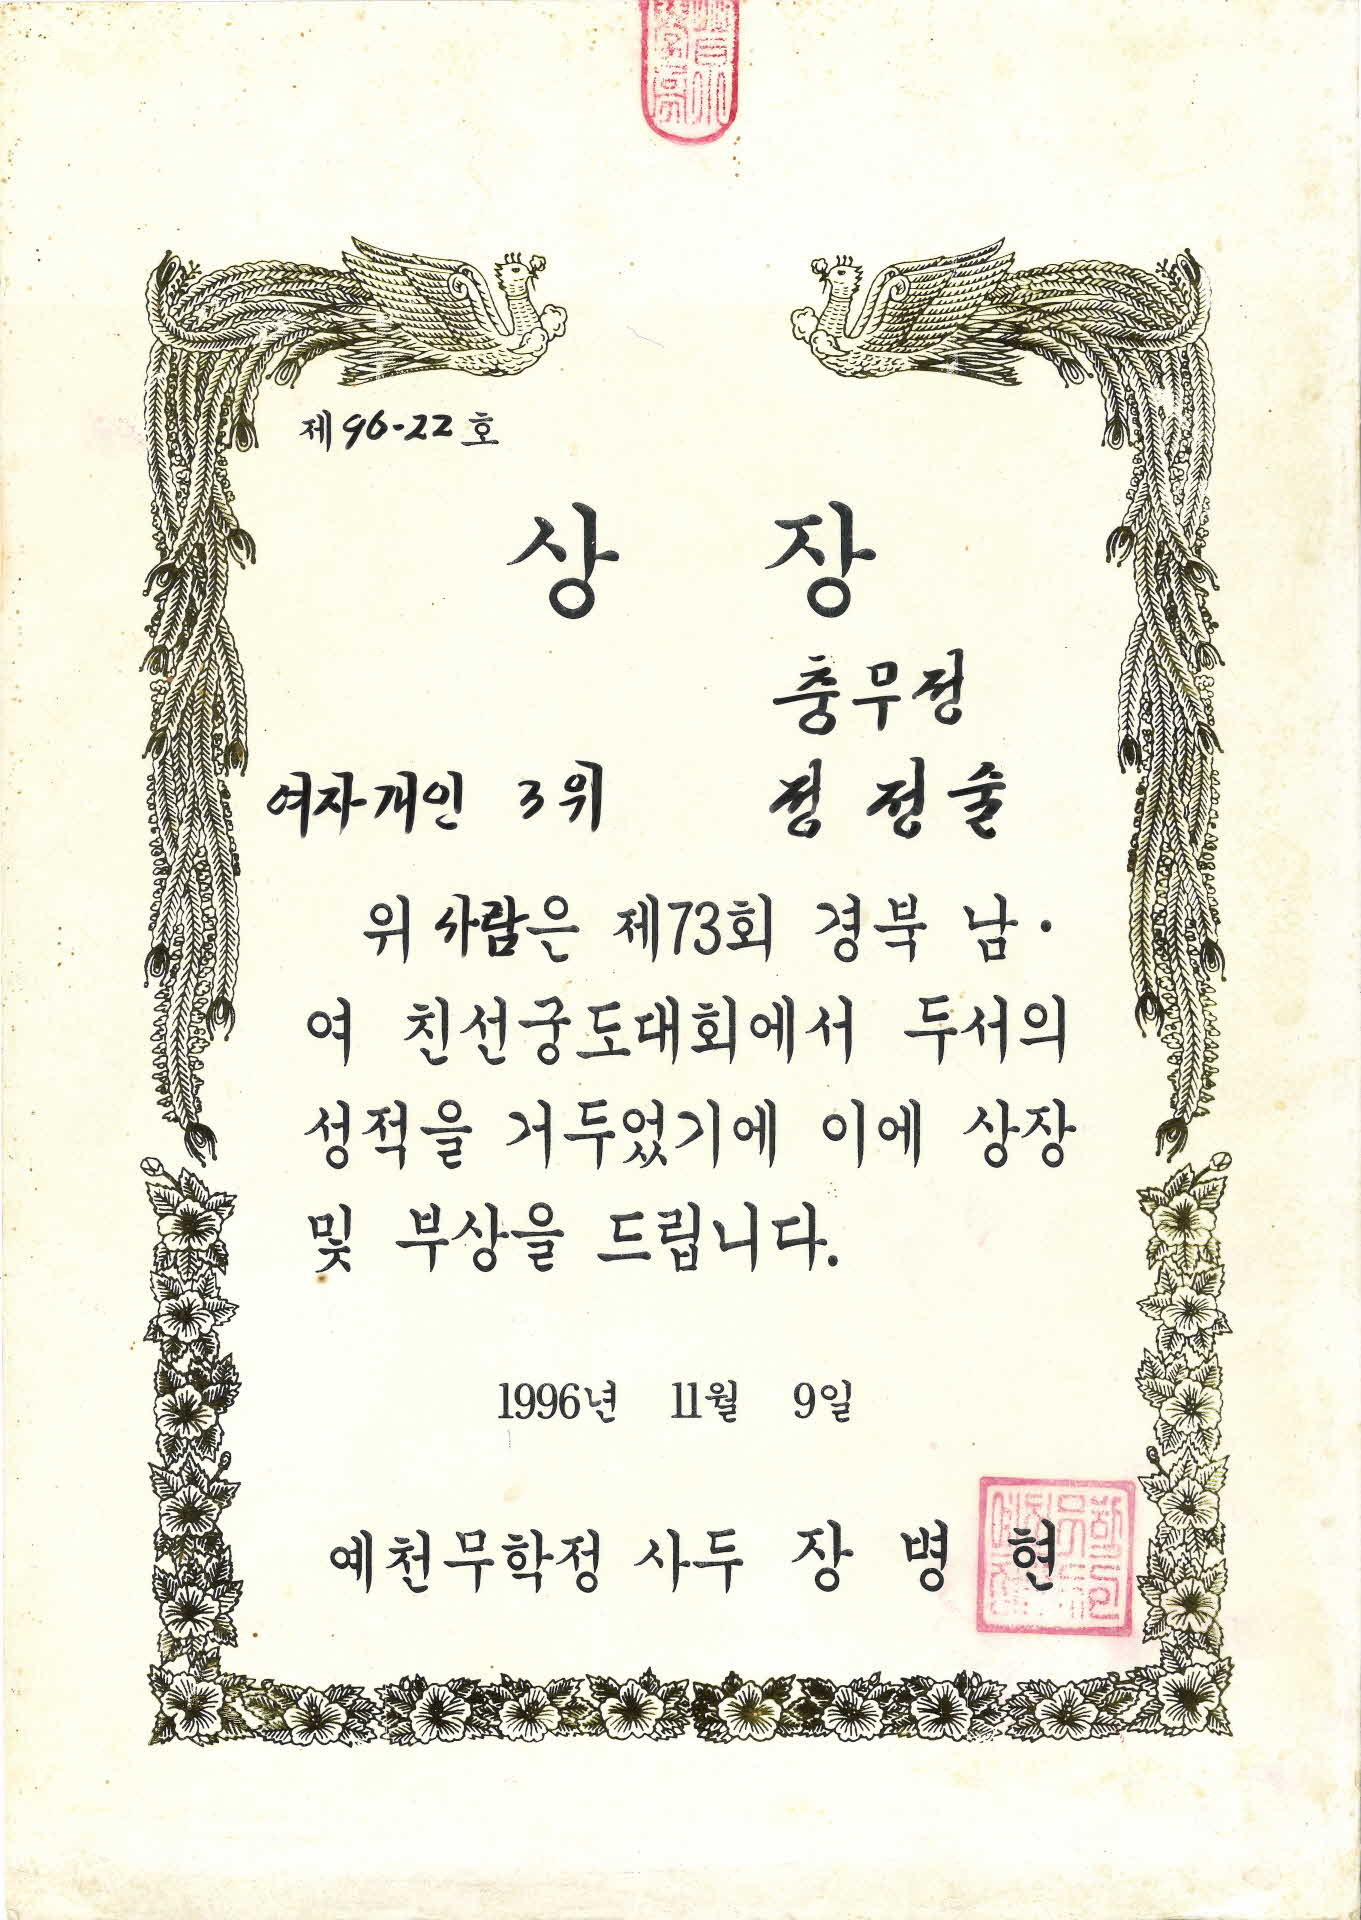 제 96-22 호
상 장
충무정
여자개인 3위 정 정술
위 사람은 제73회 경북 남·
여 친선궁도대회에서 두서의
성적을 거두었기에 이에 상장
및 부상을 드립니다.
1996년 11월 9일
예천무학정 사두 장 병 현